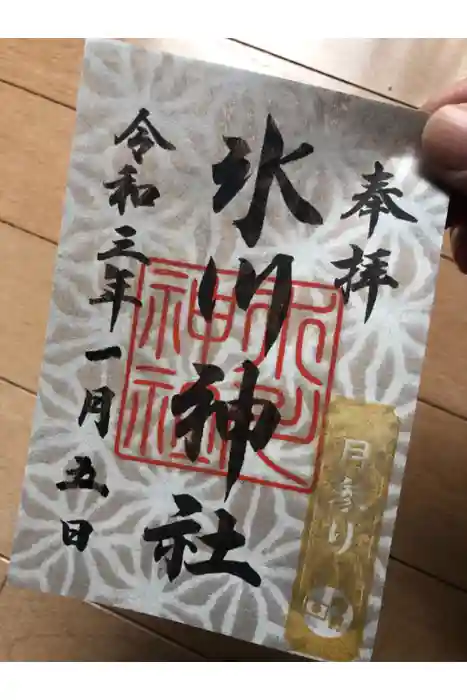 奉拝
氷川神社
令和三年一月五日
月参り